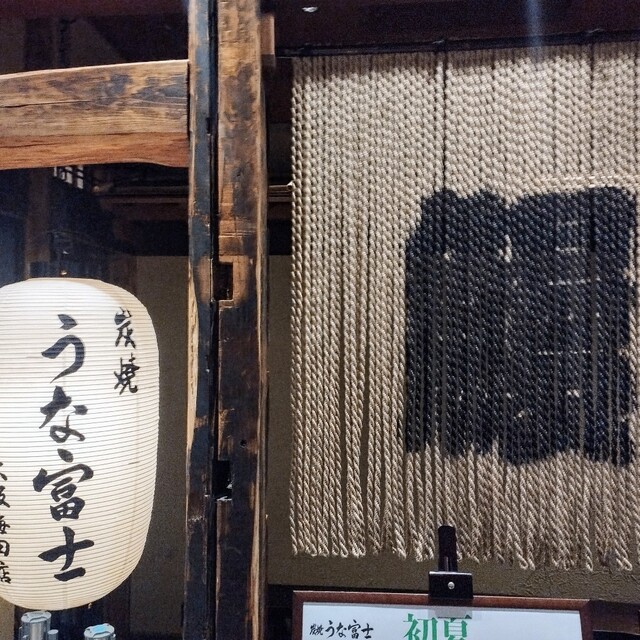 炭焼
うな富士
大阪梅田店
炭焼 うな富士
初夏